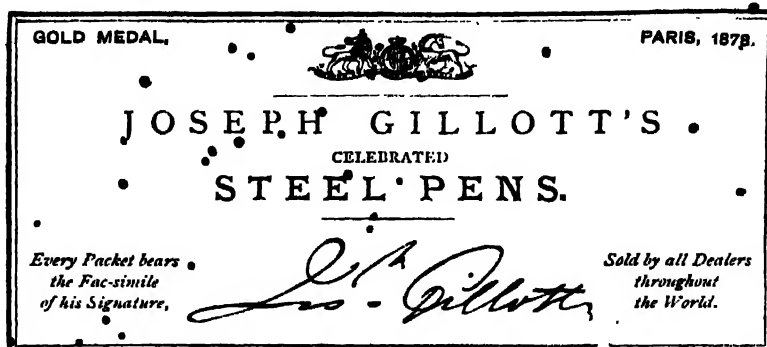 GOLD MEDAL,
PARIS, 1878.
JOSEPH GILLOTT'S
CELEBRATED
STEEL PENS.
Every Packet bears
the Fac-simile
of his Signature,
Jos.h Gillott
Sold by all Dealers
throughout
the World.